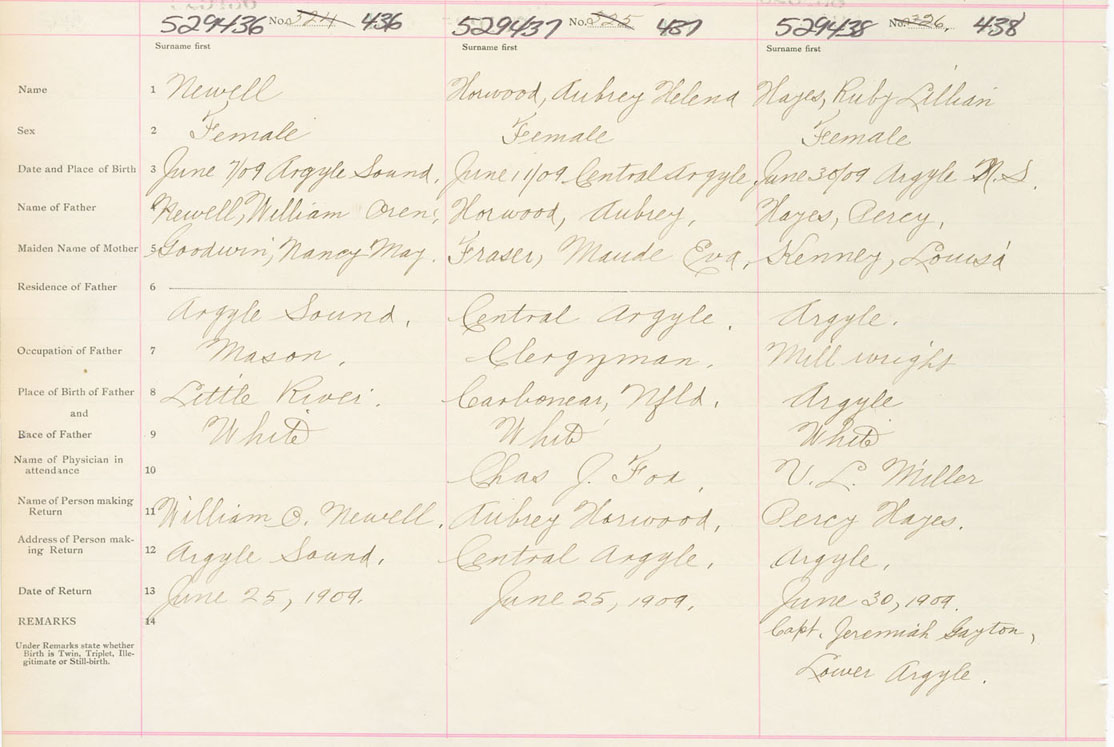 529436 No. 324 436 529437 No. 325 437 529438 No. 326. 438
Surname first Surname first Surname first
Name 1 Newell Horwood, Aubrey Helena Hayes, Ruby Lillian
Sex 2 Female Female Female
Date and Place of Birth 3 June 7/09 Argyle Sound. June 11/09 Central Argyle, June 30/09 Argyle N.S.
Name of Father 4 Newell, William Oren, Horwood, Aubrey, Hayes, Percy,
Maiden Name of Mother 5 Goodwin, Nancy May. Fraser, Maude Eva, Kenney, Louisa
Residence of Father 6
Argyle Sound. Central Argyle. Argyle.
Occupation of Father 7 Mason. Clergyman. Mill wright
Place of Birth of Father 8 Little River. Carbonear, Nfld. Argyle
and
Race of Father 9 White White White
Name of Physician in
attendance 10 Chas J. Fox, V. L. Miller
Name of Person making
Return 11 William O. Newell. Aubrey Horwood, Percy Hayes.
Address of Person mak-
ing Return 12 Argyle Sound. Central Argyle, Argyle,
Date of Return 13 June 25, 1909. June 25, 1909. June 30, 1909.
REMARKS 14 Capt. Jeremiah Gayton,
Under Remarks state whether
Birth is Twin, Triplet, Ille-
gitimate or Still-birth.
Lower Argyle.